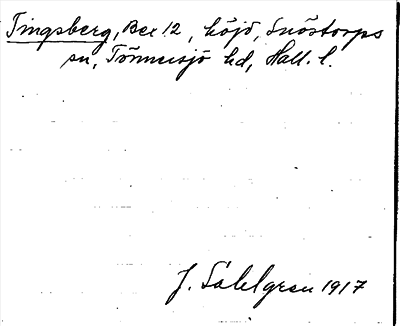 Tingsberg, Bex 12, höjd, Snöstorps
sn, Tönnersjö hd, Hall. l.
J. Sahlgren 1917